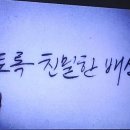 토록 친밀한 배